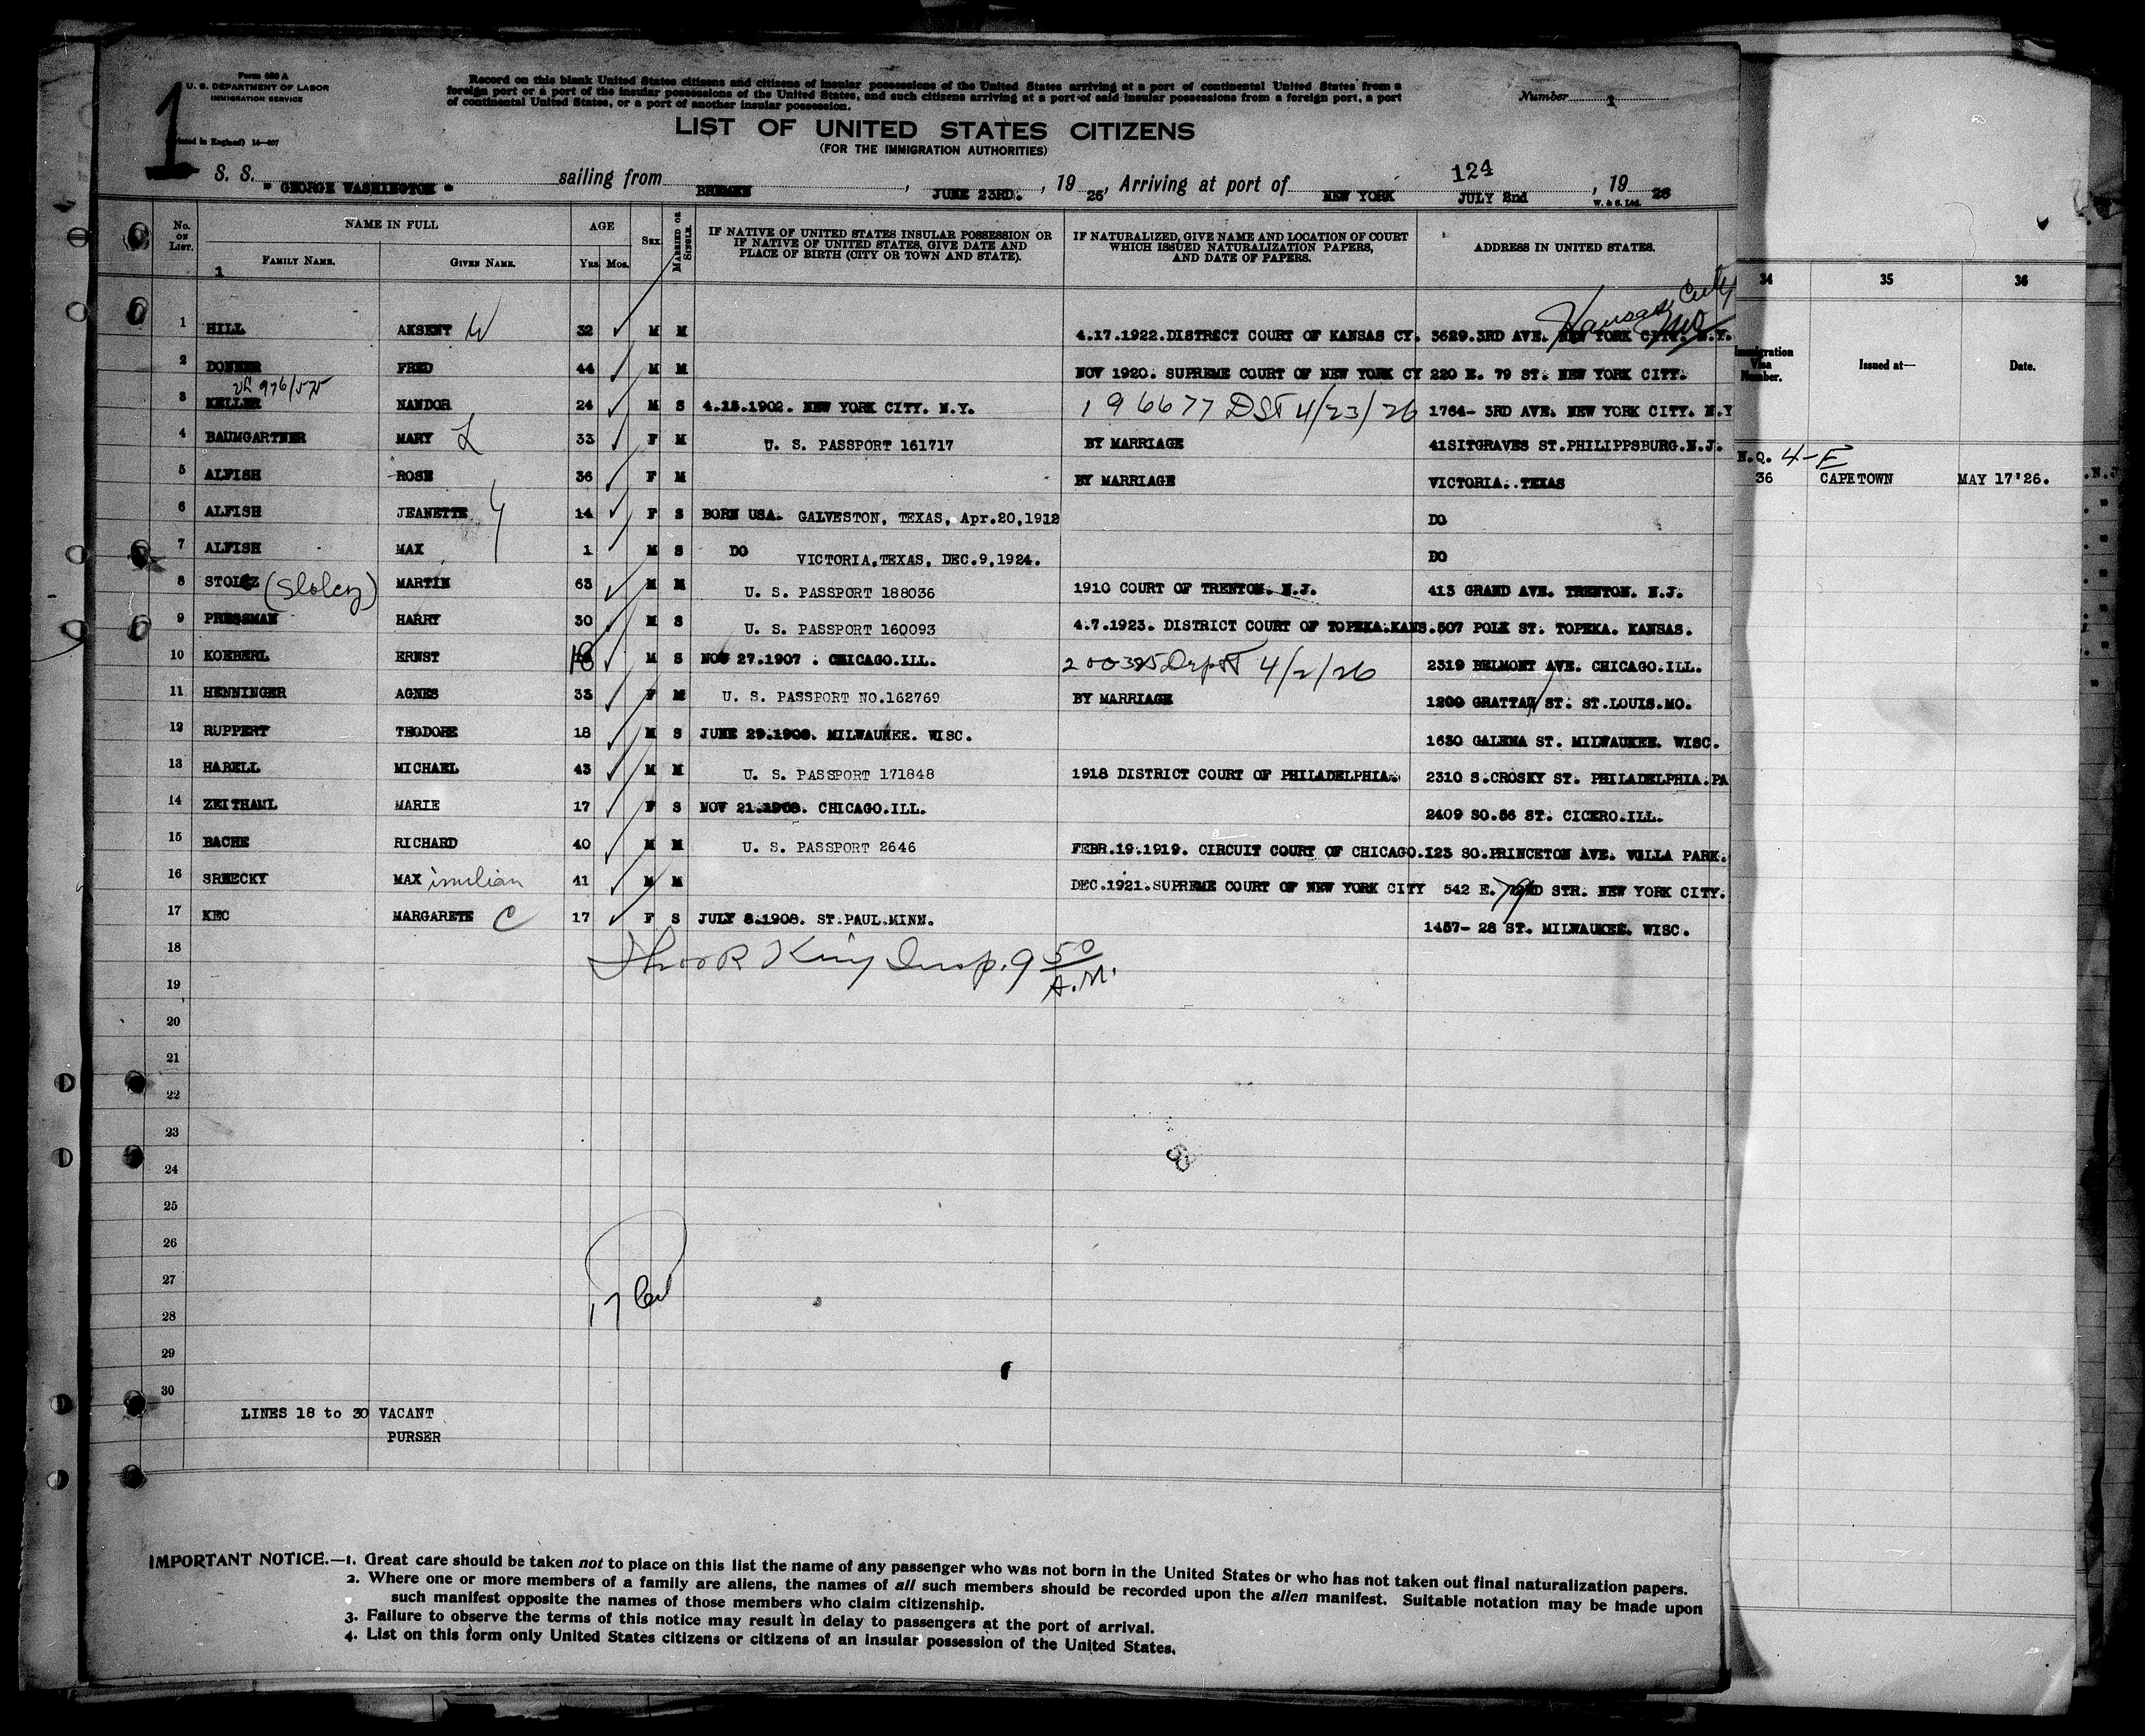 Form 630 A
U. S. DEPARTMENT OF LABOR
IMMIGRATION SERVICE
(Printed in England) 14—407
1
Record on this blank United States citizens and citizens of insular possessions of the United States arriving at a port of continental United States from a
foreign port or a port of the insular possessions of the United States, and such citizens arriving at a port of said insular possessions from a foreign port, a port
of continental United States, or a port of another insular possession.
Number 1
LIST OF UNITED STATES CITIZENS
(FOR THE IMMIGRATION AUTHORITIES)
124
S. S. " GEORGE WASHINGTON " sailing from BREMEN, JUNE 23RD., 19 26, Arriving at port of NEW YORK JULY 2nd, 19 26
W. & S. Ltd.
No. ON LIST. NAME IN FULL AGE SEX MARRIED OR SINGLE. IF NATIVE OF UNITED STATES INSULAR POSSESSION OR IF NATIVE OF UNITED STATES, GIVE DATE AND PLACE OF BIRTH (CITY OR TOWN AND STATE). IF NATURALIZED, GIVE NAME AND LOCATION OF COURT WHICH ISSUED NATURALIZATION PAPERS, AND DATE OF PAPERS. ADDRESS IN UNITED STATES.
FAMILY NAME. GIVEN NAME. YRS. MOS.
1
1 HILL AKSENT W 32 M M 4.17.1922.DISTRICT COURT OF KANSAS CY. 3629.3RD AVE. NEW YORK CITY. N.Y. Kansas City Mo
2 DONNER FRED 44 M M NOV 1920. SUPREME COURT OF NEW YORK CY 220 E. 79 ST. NEW YORK CITY.
976/575
3 KELLER NANDOR 24 M S 4.15.1902. NEW YORK CITY. N.Y. 196677 DST 4/23/26 1764- 3RD AVE. NEW YORK CITY. N.Y
4 BAUMGARTNER MARY L 33 F M U. S. PASSPORT 161717 BY MARRIAGE 41SITGRAVES ST.PHILIPPSBURG.N.J.
5 ALFISH ROSE 36 F M BY MARRIAGE VICTORIA. TEXAS
6 ALFISH JEANETTE 14 F S BORN USA. GALVESTON, TEXAS, Apr.20,1912 DO
7 ALFISH MAX 1 M S DO VICTORIA,TEXAS, DEC.9,1924. DO
8 STOLCZ (Slolcz) MARTIN 63 M M U. S. PASSPORT 188036 1910 COURT OF TRENTON. N.J. 413 GRAND AVE. TRENTON. N.J.
9 PRESSMAN HARRY 30 M S U. S. PASSPORT 160093 4.7.1923. DISTRICT COURT OF TOPEKA.KANS. 507 POLK ST. TOPEKA. KANSAS.
10 KOEBERL ERNST 18 M S NOV 27.1907 . CHICAGO.ILL. 200385 Dept 4/2/26 2319 BELMONT AVE. CHICAGO.ILL.
11 HENNINGER AGNES 33 F M U. S. PASSPORT NO.162769 BY MARRIAGE 1200 GRATTAN ST. ST.LOUIS.MO.
12 RUPPERT THODORE 18 M S JUNE 29.1908. MILWAUKEE. WISC. 1630 GALENA ST. MILWAUKEE. WISC.
13 HABELL MICHAEL 43 M M U. S. PASSPORT 171848 1918 DISTRICT COURT OF PHILADELPHIA. 2310 S.CROSKY ST. PHILADELPHIA.PA
14 ZEITHAML MARIE 17 F S NOV 21.1908. CHICAGO.ILL. 2409 SO.56 ST. CICERO.ILL.
15 BACHE RICHARD 40 M M U. S. PASSPORT 2646 FEBR.19.1919. CIRCUIT COURT OF CHICAGO. 123 SO.PRINCETON AVE. VILLA PARK.
16 SRNECKY MAX imilian 41 M M DEC.1921.SUPREME COURT OF NEW YORK CITY 542 E. 79 ND STR. NEW YORK CITY.
17 KEC MARGARETE C 17 F S JULY 8.1908. ST.PAUL.MINN. 1457- 28 ST. MILWAUKEE. WISC.
18
King Insp. 9 50 A.M.
19
20
21
22
23
24
25
26
27
17
28
29
30
LINES 18 to 30 VACANT
PURSER
IMPORTANT NOTICE.—1. Great care should be taken not to place on this list the name of any passenger who was not born in the United States or who has not taken out final naturalization papers.
2. Where one or more members of a family are aliens, the names of all such members should be recorded upon the alien manifest. Suitable notation may be made upon
such manifest opposite the names of those members who claim citizenship.
3. Failure to observe the terms of this notice may result in delay to passengers at the port of arrival.
4. List on this form only United States citizens or citizens of an insular possession of the United States.
34 35 36
Immigration Visa Number. Issued at— Date.
N.Q. 4-E
36 CAPETOWN MAY 17'26.
.N.J